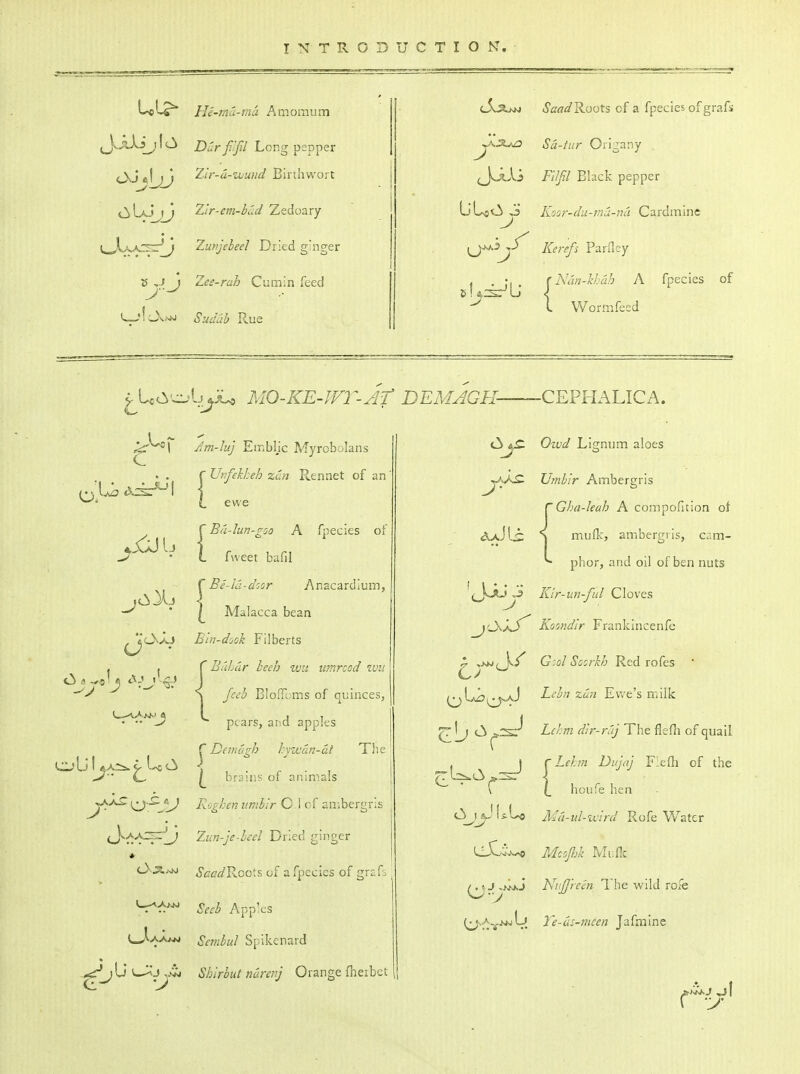 INTRODUCTION.
حماما Hé-má-má Amomum
دارفلفل Dár filfil Long pepper
زراوند Zír-á-wund Birthwort
زرنباد Zír-em-bád Zedoary
زنجبیل Zunjebeel Dried ginger
زیره Zee-rah Cumin ſeed
سداب Sudáb Rue
سعد Saad Roots of a ſpecies of graſs
صعتر Sá-tur Origany
فلفل Filfil Black pepper
قردمانا Koor-du-má-ná Cardmine
کرفس Kerefs Parſley
نانخواه Nán-kháh A ſpecies of
Wormſeed
مقویات دماغ MO-KE-WY-AT DEMAGH——CEPHALICA.
آملج Am-luj Emblic Myrobolans
انفخه ضان Unfekheh zán Rennet of an
ewe
بالنکو Bá-lun-goo A ſpecies of
ſweet baſil
بلادر Be-lá-door Anacardium,
Malacca bean
بندق Bin-dook Filberts
بهار به و امرود و سیب Báhár beeh wu umrood wu
seeb Bloſſoms of quinces,
pears, and apples
دماغ حیوانات Demágh hywán-át The
brains of animals
روغن عنبر Roghen umbir Oil of ambergris
زنجبیل Zun-je-beel Dried ginger
سعد Saad Roots of a ſpecies of graſs
سیب Seeb Apples
سنبل Sembul Spikenard
شربت نارنج Shirbut nárenj Orange ſherbet
عود Owd Lignum aloes
عنبر Umbir Ambergris
غالیه Gha-leah A compoſition of
muſk, ambergris, cam-
phor, and oil of ben nuts
قرنفل Kír-un-ful Cloves
کندر Koondir Frankincenſe
گل سرخ Gool Soorkh Red roſes
لبن ضان Lebn zán Ewe's milk
لحم دراج Lehm dir-ráj The fleſh of quail
لحم دجاج Lehm Dujaj Fleſh of the
houſe hen
ماءالورد Má-ul-wird Roſe Water
مشک Mooſhk Muſk
نسرین Nuſſreen The wild roſe
یاسمین Ye-ás-meen Jaſmine
ابریشم